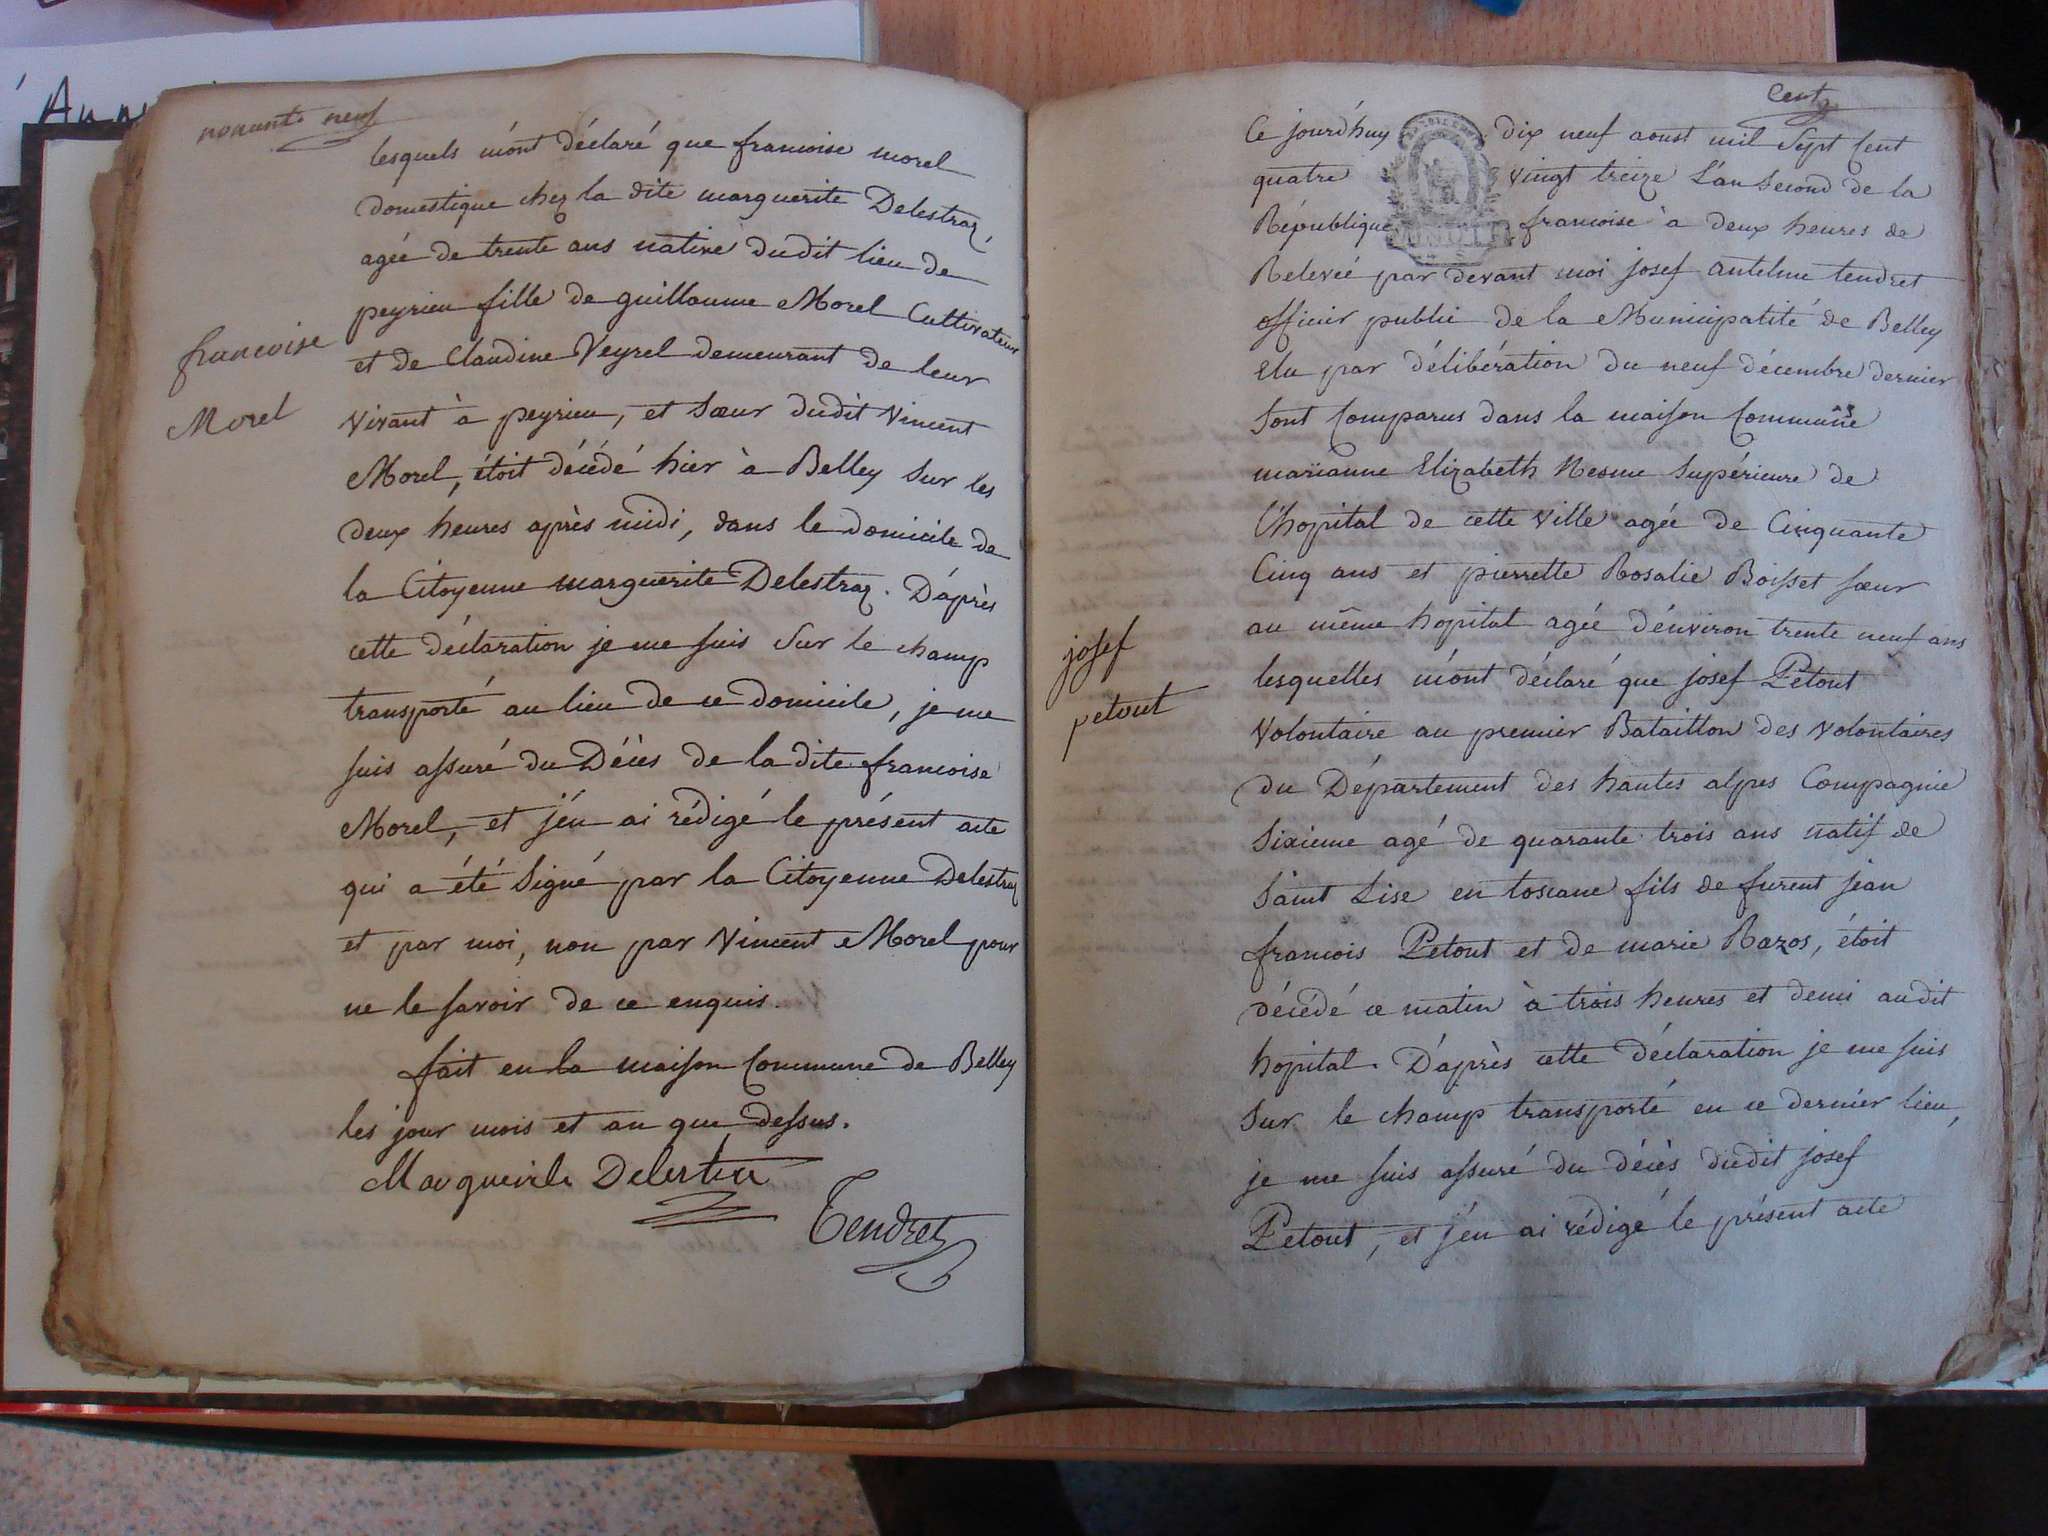 nonante neuf
lesquels m'ont déclaré que francoise morel
domestique chez la dite marguerite Delestraz,
agée de trente ans native dudit lieu de
peyrieu fille de guillaume Morel Cultivateur
et de Claudine Veyrel demeurant de leur
vivant à peyrieu, et sœur dudit Vincent
Morel, étoit décédé hier à Belley sur les
deux heures après midi, dans le domicile de
la Citoyenne marguerite Delestraz. D'après
cette déclaration je me suis sur le champ
transporté au lieu de ce domicile, je me
suis assuré du Décès de la dite francoise
Morel, et j'en ai rédigé le présent acte
qui a été signé par la Citoyenne Delestraz
et par moi, non par Vincent Morel pour
ne le savoir de ce enquis.
fait en la maison Commune de Belley
les jour mois et an que dessus.
Marguerite Delestra
Tendret
francoise
Morel
Cent
Ce jourd'huy dix neuf aoust mil Sept Cent
quatre vingt treize L'an Second de la
République francoise à deux heures de
Relevée par devant moi josef antelme tendret
officier public de la Municipalité de Belley
Elu par délibération du neuf décembre dernier
sont Comparus dans la maison Commune
marianne Elizabeth Nesme Supérieure de
l'hopital de cette ville agée de Cinquante
Cinq ans et pierrette Rosalie Boisset sœur
au même hopital agée d'environ trente neuf ans
lesquelles m'ont déclaré que josef Petout
Volontaire au premier Bataillon des Volontaires
du Département des hautes alpes Compagnie
Sixieme agé de quarante trois ans natif de
Saint Lise en toscane fils de furent jean
francois Petout et de marie Razos, étoit
Décédé ce matin à trois heures et demi audit
hopital. D'après cette déclaration je me suis
sur le champ transporté en ce dernier lieu,
je me suis assuré du décès dudit josef
Petout, et j'en ai rédigé le présent acte
josef
petout